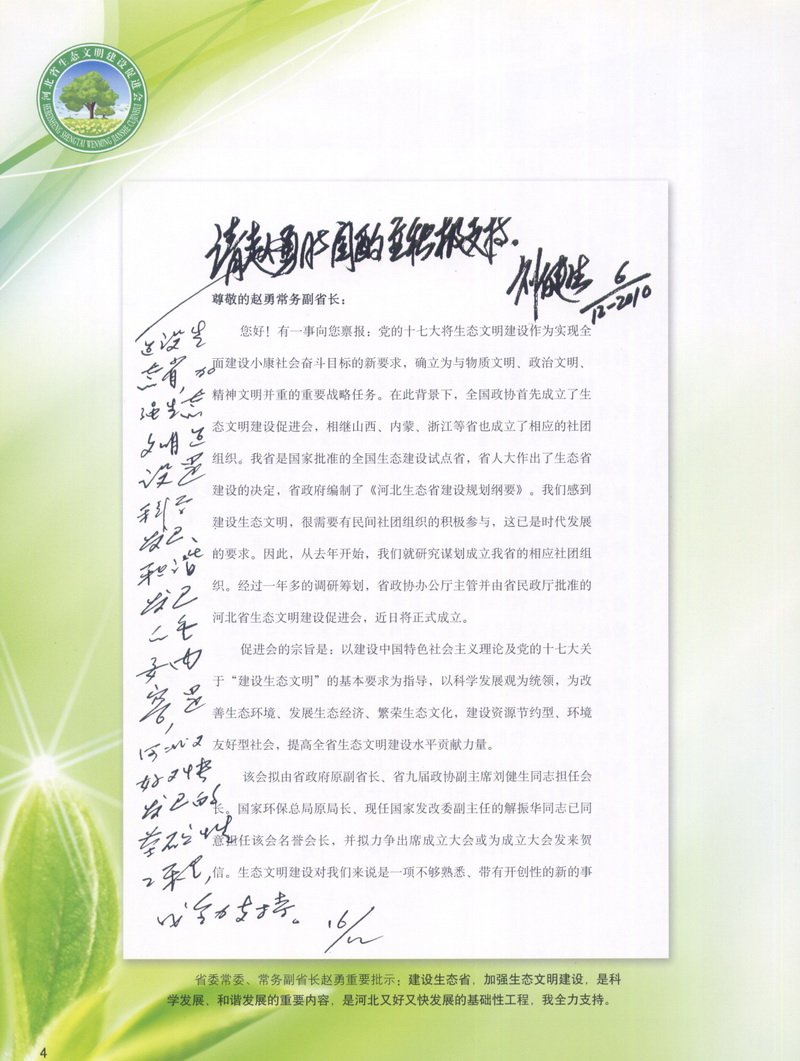 河北省生态文明建设促进会
HEBEISHENG SHENGTAI WENMING JIANSHE CUJINHUI
请赵勇时阅酌重积极支持。
刘健生 6/12-2010
尊敬的赵勇常务副省长：
您好！有一事向您禀报：党的十七大将生态文明建设作为实现全
面建设小康社会奋斗目标的新要求，确立为与物质文明、政治文明、
精神文明并重的重要战略任务。在此背景下，全国政协首先成立了生
态文明建设促进会，相继山西、内蒙、浙江等省也成立了相应的社团
组织。我省是国家批准的全国生态建设试点省，省人大作出了生态省
建设的决定，省政府编制了《河北生态省建设规划纲要》。我们感到
建设生态文明，很需要有民间社团组织的积极参与，这已是时代发展
的要求。因此，从去年开始，我们就研究谋划成立我省的相应社团组
织。经过一年多的调研筹划，省政协办公厅主管并由省民政厅批准的
河北省生态文明建设促进会，近日将正式成立。
促进会的宗旨是：以建设中国特色社会主义理论及党的十七大关
于“建设生态文明”的基本要求为指导，以科学发展观为统领，为改
善生态环境、发展生态经济、繁荣生态文化，建设资源节约型、环境
友好型社会，提高全省生态文明建设水平贡献力量。
该会拟由省政府原副省长、省九届政协副主席刘健生同志担任会
长。国家环保总局原局长、现任国家发改委副主任的解振华同志已同
意担任该会名誉会长，并拟力争出席成立大会或为成立大会发来贺
信。生态文明建设对我们来说是一项不够熟悉、带有开创性的新的事
建设生
态省，加
强生态
文明建
设是
科学
发展、
和谐
发展
的重
要内
容，是
河北又
好又快
发展的
基础性
工程，
我全力支持。
16/12
省委常委、常务副省长赵勇重要批示：建设生态省，加强生态文明建设，是科
学发展、和谐发展的重要内容，是河北又好又快发展的基础性工程，我全力支持。
4